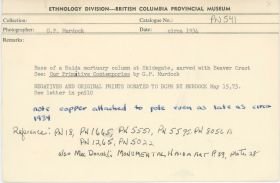 ETHNOLOGY DIVISION—BRITISH COLUMBIA PROVINCIAL MUSEUM
Collection: Catalogue No.: PN 541
Photographer: G.P. Murdock Date: circa 1934
Remarks:
Base of a Haida mortuary column at Skidegate, carved with Beaver Crest
See: Our Primitive Contemporaries by G.P. Murdock
NEGATIVES AND ORIGINAL PRINTS DONATED TO BCPM BY MURDOCK May 15,73.
See letter in pn510
note copper attached to pole even as late as circa
1934
Reference: PN 18, PN 1665, PN 5551, PN 5595, PN
PN 1265, PN 5022
also MacDonald: MONUMENTAL HAIDA ART P.